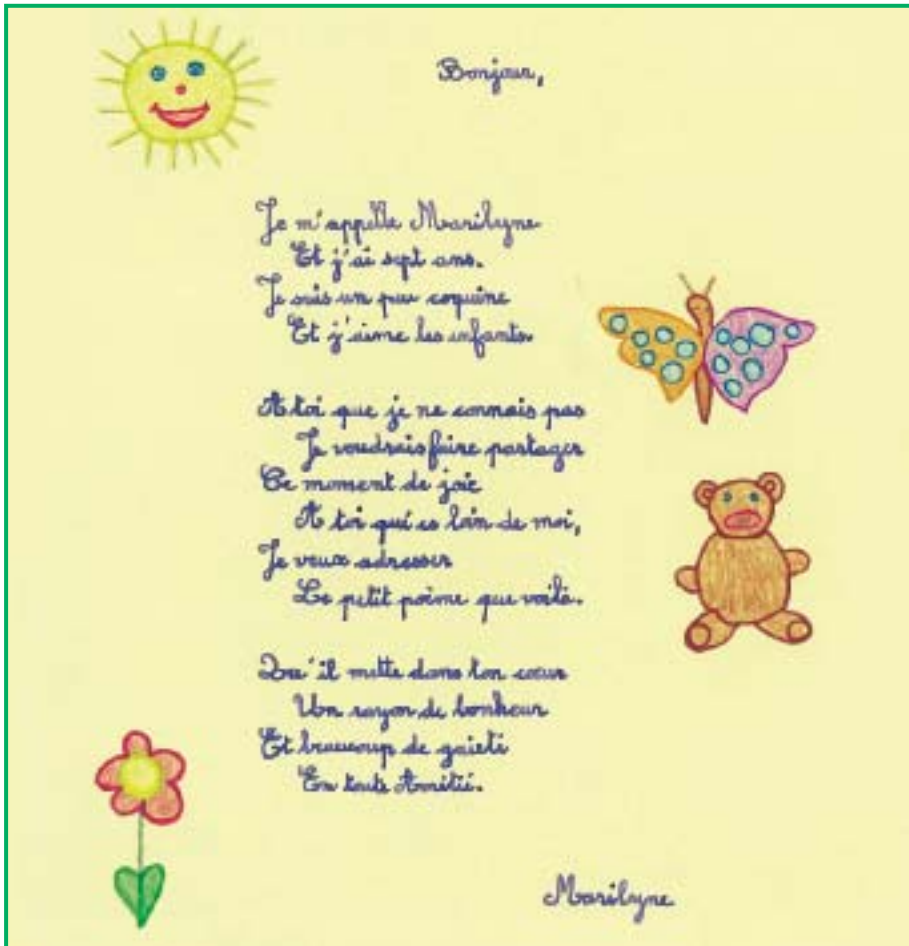 Bonjour,
Je m'appelle Marilyne
Et j'ai sept ans.
Je suis un peu coquine
Et j'aime les enfants.
A toi que je ne connais pas
Je voudrais faire partager
Ce moment de joie
A toi qui es loin de moi,
Je veux adresser
Le petit poème que voilà.
Qu'il mette dans ton cœur
Un rayon de bonheur
Et beaucoup de gaieté
En toute Amitié.
Marilyne